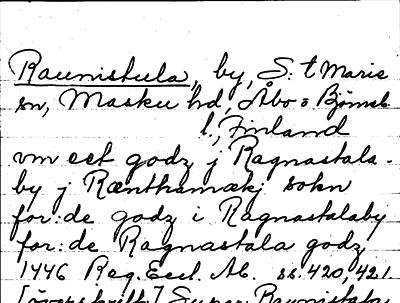 Raunistula, by, S:t Marie
sn, Masku hd, Åbo o Björneb
l., Finland
vm eet godz j Ragnastala-
by j Rænthemækj sokn
for:de godz i Ragnastalaby
for:de Ragnastala godz
1446 Reg. Eccl. Ab. ss. 420, 421
[överskrift] Super Raunistala